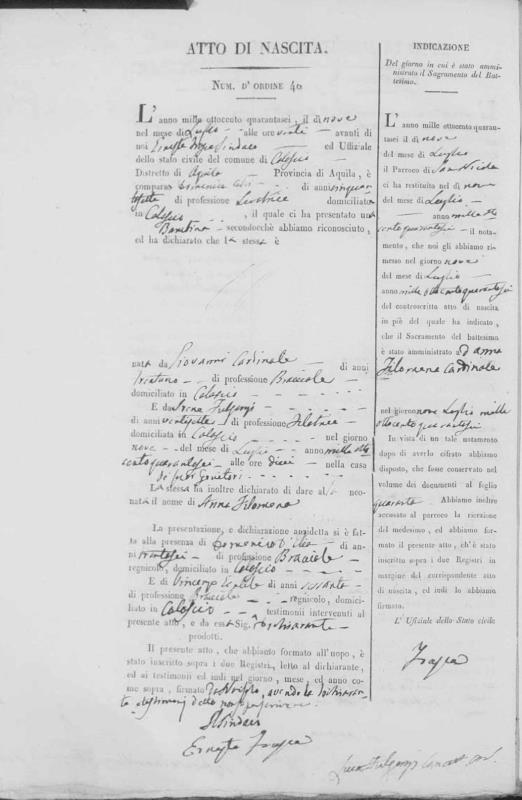 ATTO DI NASCITA.
NUM. D'ORDINE 40
L'anno mille ottocento quarantasei, il dì nove
nel mese di Luglio alle ore venti avanti di
noi Ernesto Sindaco ed Uffiziale
dello stato civile del comune di
Distretto di Aquila Provincia di Aquila, è
comparsa Domenica di anni cinquan
tasette di professione Levatrice domiciliata
in , il quale ci ha presentato una
Bambina secondochè abbiamo riconosciuto,
ed ha dichiarato che la stessa è
nata da Giovanni Cardinale di anni
trentuno di professione Bracciale
domiciliato in
E da Irena Fulgenzi
di anni ventisette di professione Filatrice
domiciliata in nel giorno
nove del mese di Luglio anno mille otto
cento quarantasei alle ore dieci nella casa
di genitori
La stessa ha inoltre dichiarato di dare al neo-
nata il nome di Anna Filomena
La presentazione, e dichiarazione anzidetta si è fat-
ta alla presenza di Domenico D'Elia di an-
ni trentasei di professione Bracciale
regnicolo, domiciliato in
E di Vincenzo di anni sessanta
di professione Bracciale regnicolo, domici-
liato in testimonii intervenuti al
presente atto, e da essa Sig. dichiarante
prodotti.
Il presente atto, che abbiamo formato all'uopo, è
stato inscritto sopra i due Registri, letto al dichiarante,
ed ai testimonii ed indi nel giorno, mese, ed anno co-
me sopra, firmato avendo la dichiaran
te e testimonj detto non
Il Sindaco
Ernesto
INDICAZIONE
Del giorno in cui è stato ammi-
nistrato il Sagramento del Bat-
tesimo.
L'anno mille ottocento quaran-
tasei il dì nove
del mese di Luglio
il Parroco di San Nicola
ci ha restituita nel dì nove
del mese di Luglio
anno mille otto
cento quarantasei il no-
tamento, che noi gli abbiamo ri-
messo nel giorno nove
del mese di Luglio
anno mille ottocentoquarantasei
del controscritto atto di nascita
in piè del quale ha indicato,
che il Sacramento del battesimo
è stato amministrato a d'Anna
Filomena Cardinale
nel giorno nove Luglio mille
ottocento quarantasei
In vista di un tale notamento
dopo di averlo cifrato abbiamo
disposto, che fosse conservato nel
volume dei documenti al foglio
quaranta Abbiamo inoltre
accusato al parroco la ricezione
del medesimo, ed abbiamo for-
mato il presente atto, ch'è stato
inscritto sopra i due Registri in
margine del corrispondente atto
di nascita, ed indi lo abbiamo
firmato.
L'Ufiziale dello Stato civile